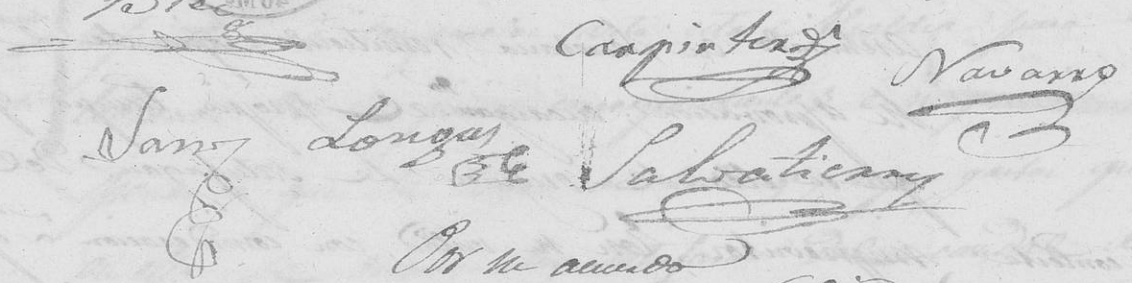 Carpintero
Navarro
Sanz Longas Salvatierra
Por su acuerdo